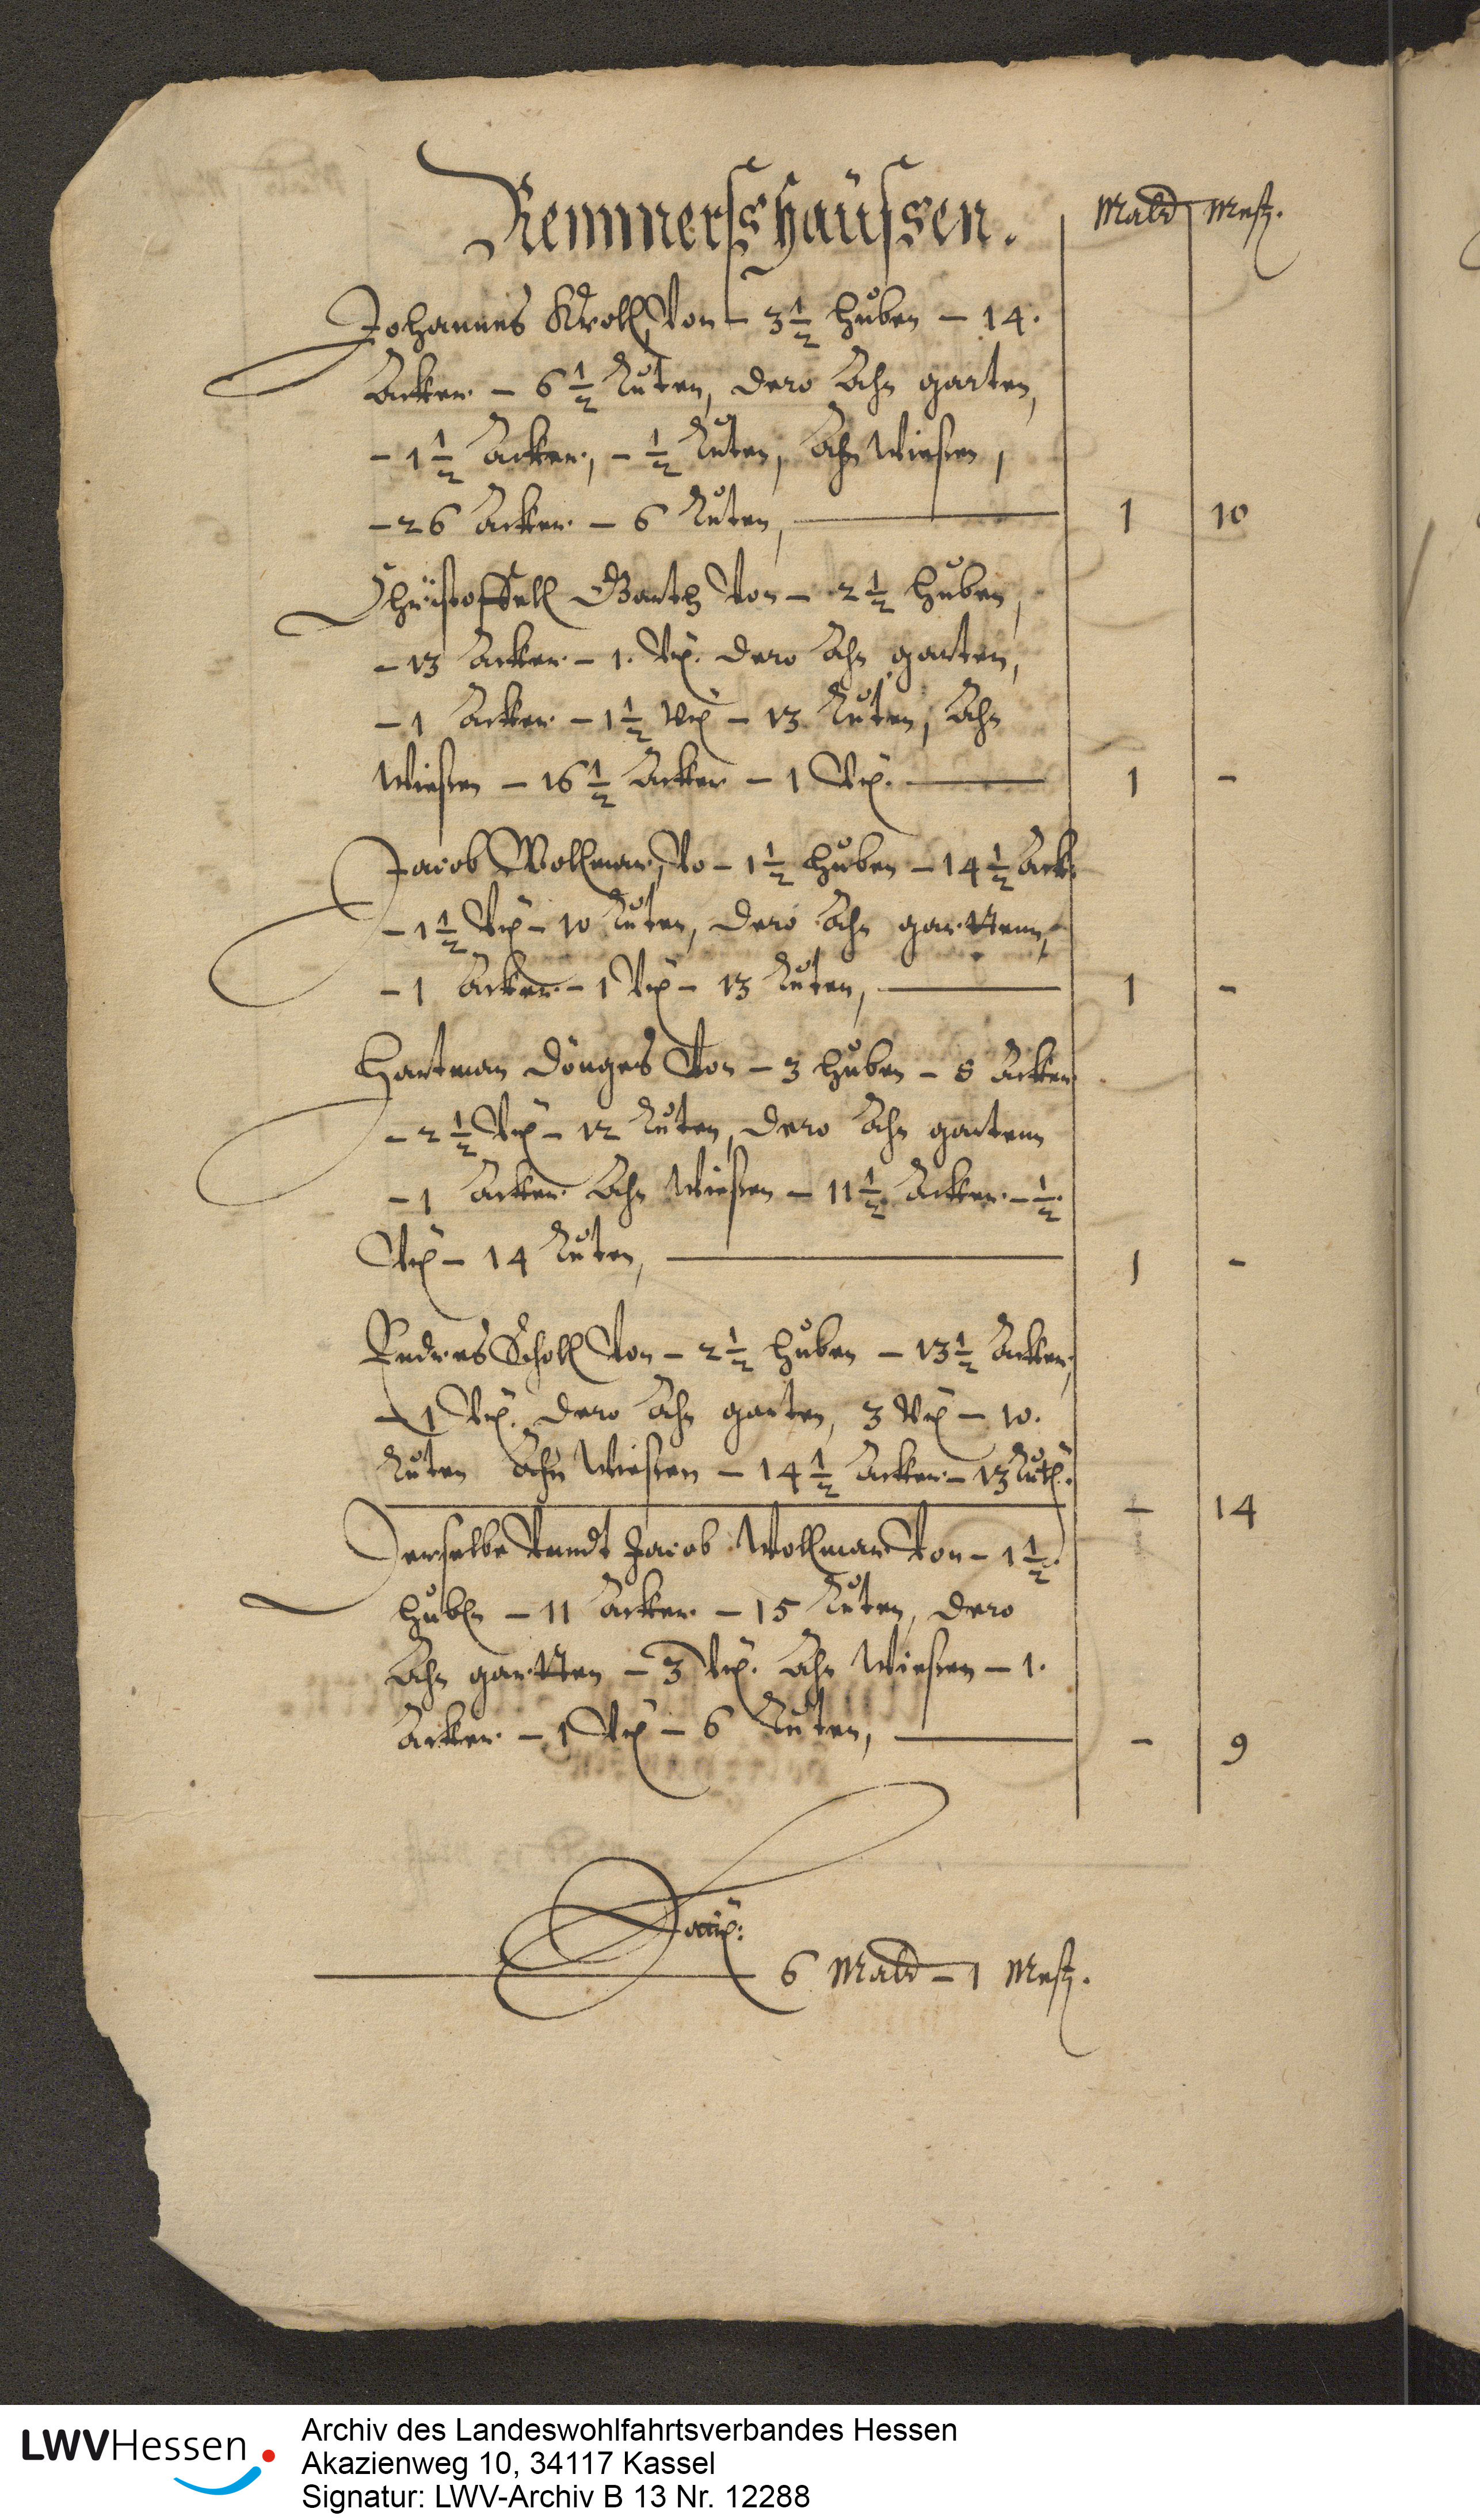 Remmerßhaüßen.
Mald Mest.
Johannes Kroll, von – 3 1/2 huben – 14.
Acker – 6 1/2 Ruten, dero Ahn garten,
– 1 1/2 Acker, – 1/2 Ruten, Ahn Wießen,
– 26 Acker – 6 Ruten, 1 10
Christoffell Barth von – 2 1/2 huben,
– 13 Acker – 1. Vr. dero Ahn garten,
– 1 Acker – 1 1/2 Vr – 13 Ruten, Ahn
Wießen – 16 1/2 Acker – 1 Vr. 1 –
Jacob Wollmar, Vo – 1 1/2 huben – 14 1/2 Ack.
– 1 1/2 Vr – 10 Ruten, dero Ahn garttenn,
– 1 Acker – 1 Vr – 13 Ruten, 1 –
Hartman Dönges Von – 3 huben – 8 Acker
– 2 1/2 Vr – 12 Ruten, dero Ahn gartenn
– 1 Acker Ahn Wießen – 11 1/2 Acker – 1/2.
Vr – 14 Ruten, 1 –
Endres Scholl Von – 2 1/2 huben – 13 1/2 Acker,
– 1 Vr. dero Ahn garten, 3 Vr – 10.
Ruten Ahn Wießen – 14 1/2 Acker – 13 Rut. – 14
Derselbe Vundt Jacob Wollmar Von – 1 1/2.
huben – 11 Acker – 15 Ruten, dero
Ahn gartten – 3 Vr. Ahn Wießen – 1.
Acker – 1 Vr – 6 Ruten, – 9
6 Mald – 1 Mest.
LWVHessen
Archiv des Landeswohlfahrtsverbandes Hessen
Akazienweg 10, 34117 Kassel
Signatur: LWV-Archiv B 13 Nr. 12288